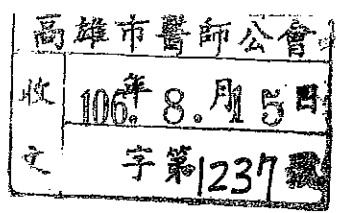 高雄市醫師公會
收文
106年8.月15日
字第1237號